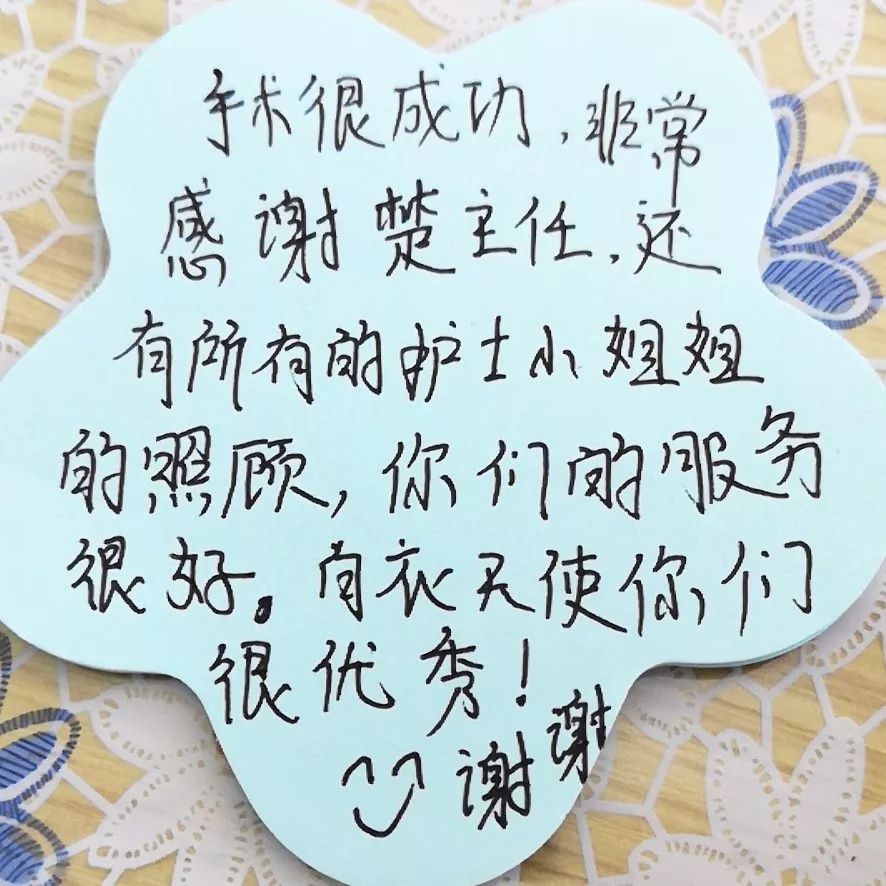 手术很成功,非常
感谢楚主任,还
有所有的护士小姐姐
的照顾,你们的服务
很好。白衣天使你们
很优秀!
谢谢